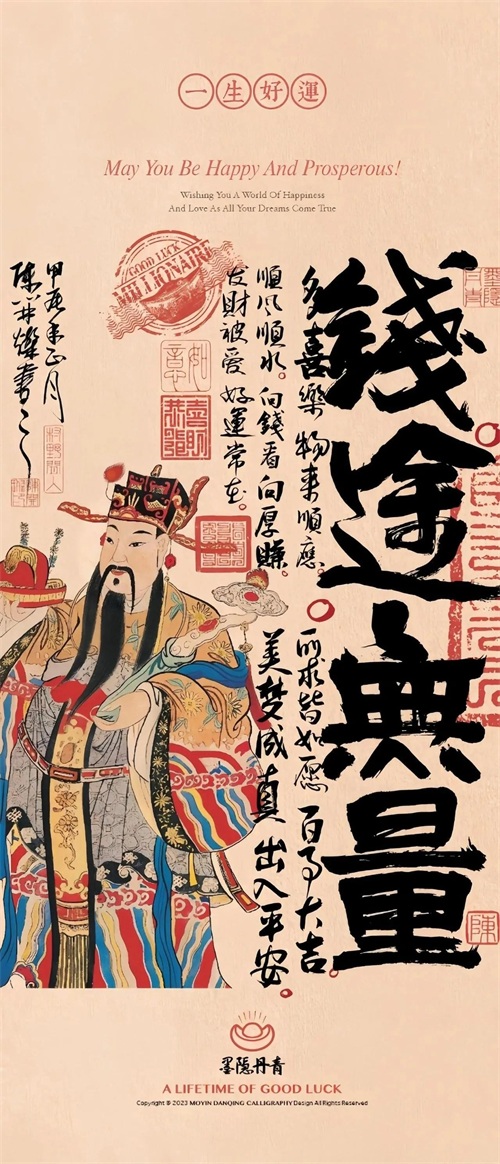 一生好運
May You Be Happy And Prosperous!
Wishing You A World Of Happiness
And Love As All Your Dreams Come True
錢途無量
多喜樂 物来順應。 所求皆如愿 百事大吉。
順风順水。向錢看向厚赚。 美梦成真 出入平安。
发財被爱 好運常在。
GOOD LUCK
MILLIONAIRE
如意
恭喜發財
甲辰年正月
村野閒人
陳
墨隱丹青
A LIFETIME OF GOOD LUCK
Copyright © 2023 MOYIN DANQING CALLIGRAPHY Design All Rights Reserved